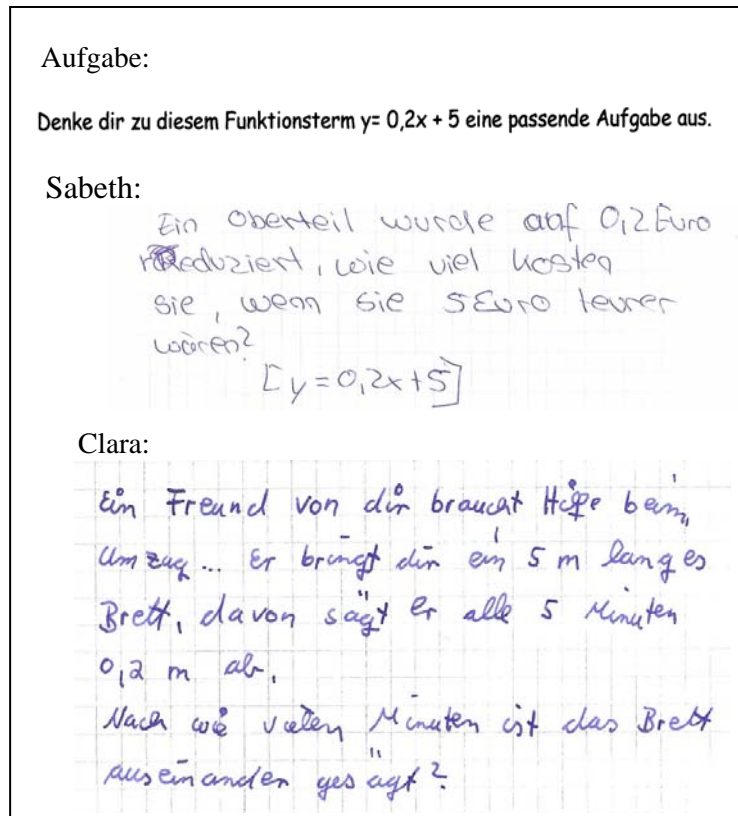 Aufgabe:
Denke dir zu diesem Funktionsterm y= 0,2x + 5 eine passende Aufgabe aus.
Sabeth:
Ein Oberteil wurde auf 0,2 Euro
reduziert, wie viel kosten
sie, wenn sie 5 Euro teurer
wären?
[y=0,2x+5]
Clara:
Ein Freund von dir braucht Hilfe beim
Umzug... Er bringt dir ein 5 m langes
Brett, davon sägt er alle 5 Minuten
0,2 m ab.
Nach wie vielen Minuten ist das Brett
auseinander gesägt?